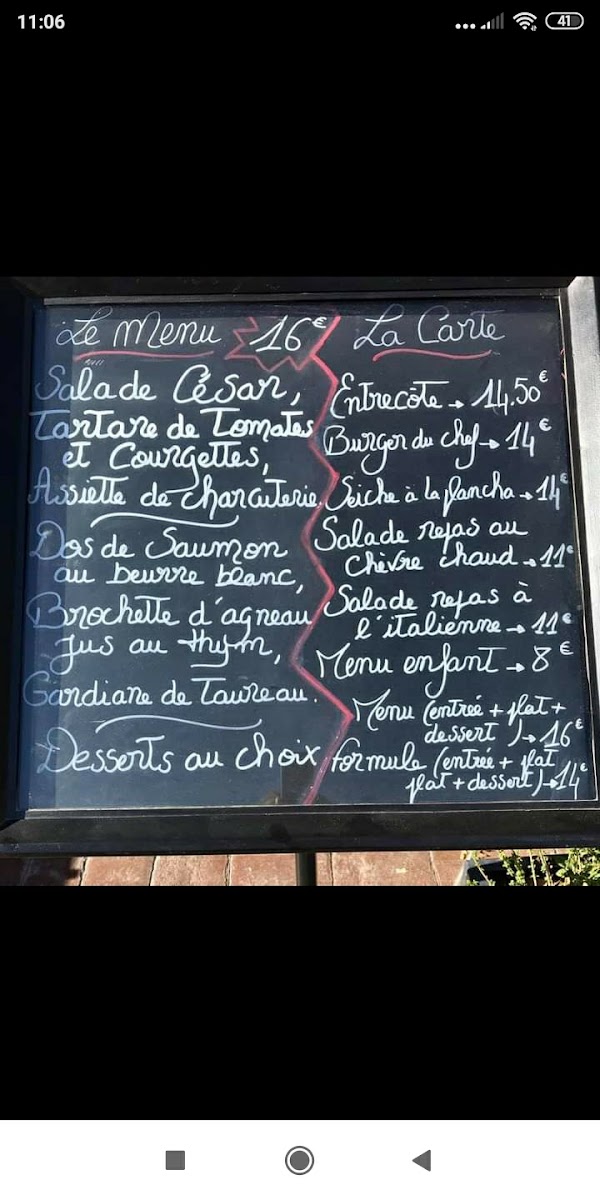 11:06
41
Le Menu 16€
Salade César,
Tartare de Tomates
et Courgettes,
Assiette de charcuterie,
Dos de Saumon
au beurre blanc,
Brochette d'agneau
jus au thym,
Gardiane de Taureau.
Desserts au choix
La Carte
Entrecôte → 14.50€
Burger du chef → 14€
Seiche à la plancha → 14€
Salade repas au
chèvre chaud → 11€
Salade repas à
l'italienne → 11€
Menu enfant → 8€
Menu (entrée + plat +
dessert) → 16€
formule (entrée + plat
plat + dessert) → 14€